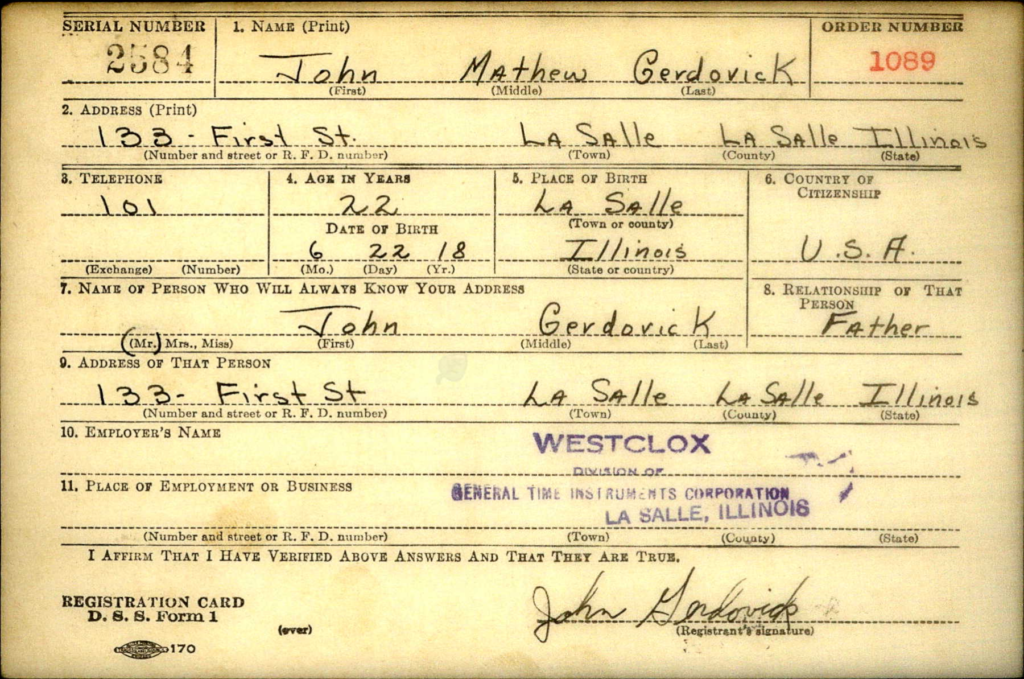 SERIAL NUMBER 1. NAME (Print) ORDER NUMBER
2584 John Mathew Gerdovick 1089
(First) (Middle) (Last)
2. ADDRESS (Print)
133 - First St. LA SAlle LA SAlle Illinois
(Number and street or R. F. D. number) (Town) (County) (State)
3. TELEPHONE 4. AGE IN YEARS 5. PLACE OF BIRTH 6. COUNTRY OF CITIZENSHIP
101 22 LA SAlle
(Town or county)
DATE OF BIRTH
6 22 18 Illinois U.S.A.
(Exchange) (Number) (Mo.) (Day) (Yr.) (State or country)
7. NAME OF PERSON WHO WILL ALWAYS KNOW YOUR ADDRESS 8. RELATIONSHIP OF THAT PERSON
John Gerdovick Father
(Mr. Mrs., Miss) (First) (Middle) (Last)
9. ADDRESS OF THAT PERSON
133 - First St LA SAlle LA SAlle Illinois
(Number and street or R. F. D. number) (Town) (County) (State)
10. EMPLOYER'S NAME
WESTCLOX
DIVISION OF
11. PLACE OF EMPLOYMENT OR BUSINESS
GENERAL TIME INSTRUMENTS CORPORATION
LA SALLE, ILLINOIS
(Number and street or R. F. D. number) (Town) (County) (State)
I AFFIRM THAT I HAVE VERIFIED ABOVE ANSWERS AND THAT THEY ARE TRUE.
REGISTRATION CARD
D. S. S. Form 1
John Gerdovick
(over) (Registrant's signature)
170